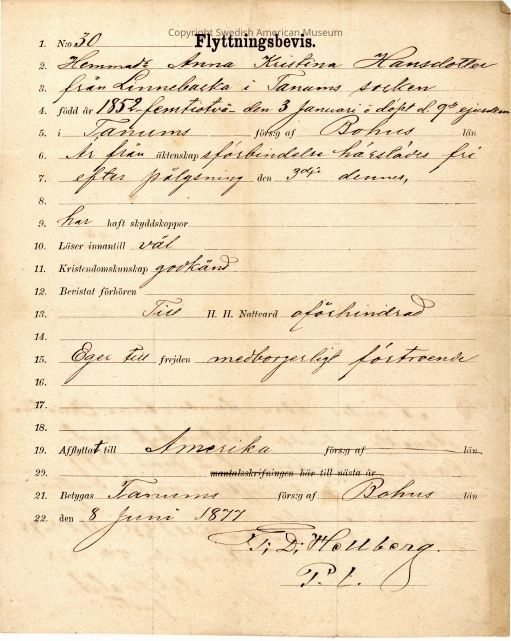 Copyright Swedish American Museum
1. N:o 30 Flyttningsbevis.
2. Hemmadr Anna Kristina Hansdotter
3. från Linnebacka i Tanums socken
4. född år 1852 femtiotvå den 3 Januari o döpt d. 9de ejusdem
5. i Tanums förs:g af Bohus län
6. Är från äktenskapsförbindelse härstädes fri
7. efter pålysning den 3dje dennes,
8.
9. har haft skyddskoppor
10. Läser innantill väl
11. Kristendomskunskap godkänd
12. Bevistat förhören
13. Till H. H. Nattvard oförhindrad
14.
15. Eger till frejden medborgerligt förtroende
16.
17.
18.
19. Afflyttat till Amerika förs:g af län
29. mantalsskrifningen här till nästa år
21. Betygas Tanums förs:g af Bohus län
22. den 8 Juni 1877
D. Hellberg.
P. l.